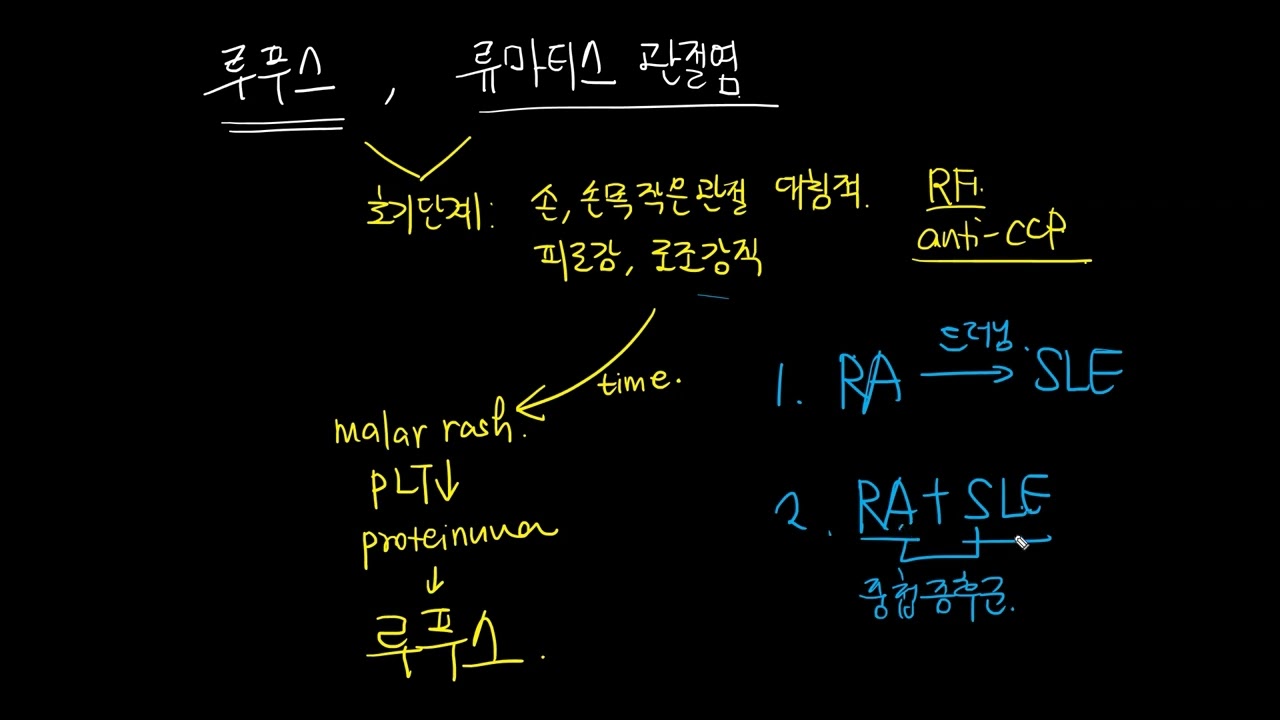 루푸스, 류마티스 관절염
초기단계: 손, 손목 작은관절 대칭적.
피로감, 조조강직
RF.
anti-CCP
time.
malar rash.
PLT↓
proteinuria
↓
루푸스.
1. RA → SLE
드러남.
2. RA + SLE
중첩증후군.